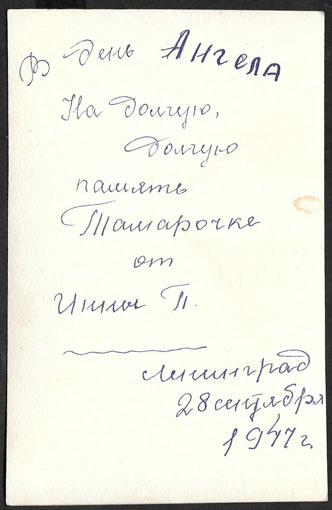 В день АНГЕЛА
На долгую,
долгую
память
Тамарочке
от
Инны П.
Ленинград
28 сентября
1947 г.